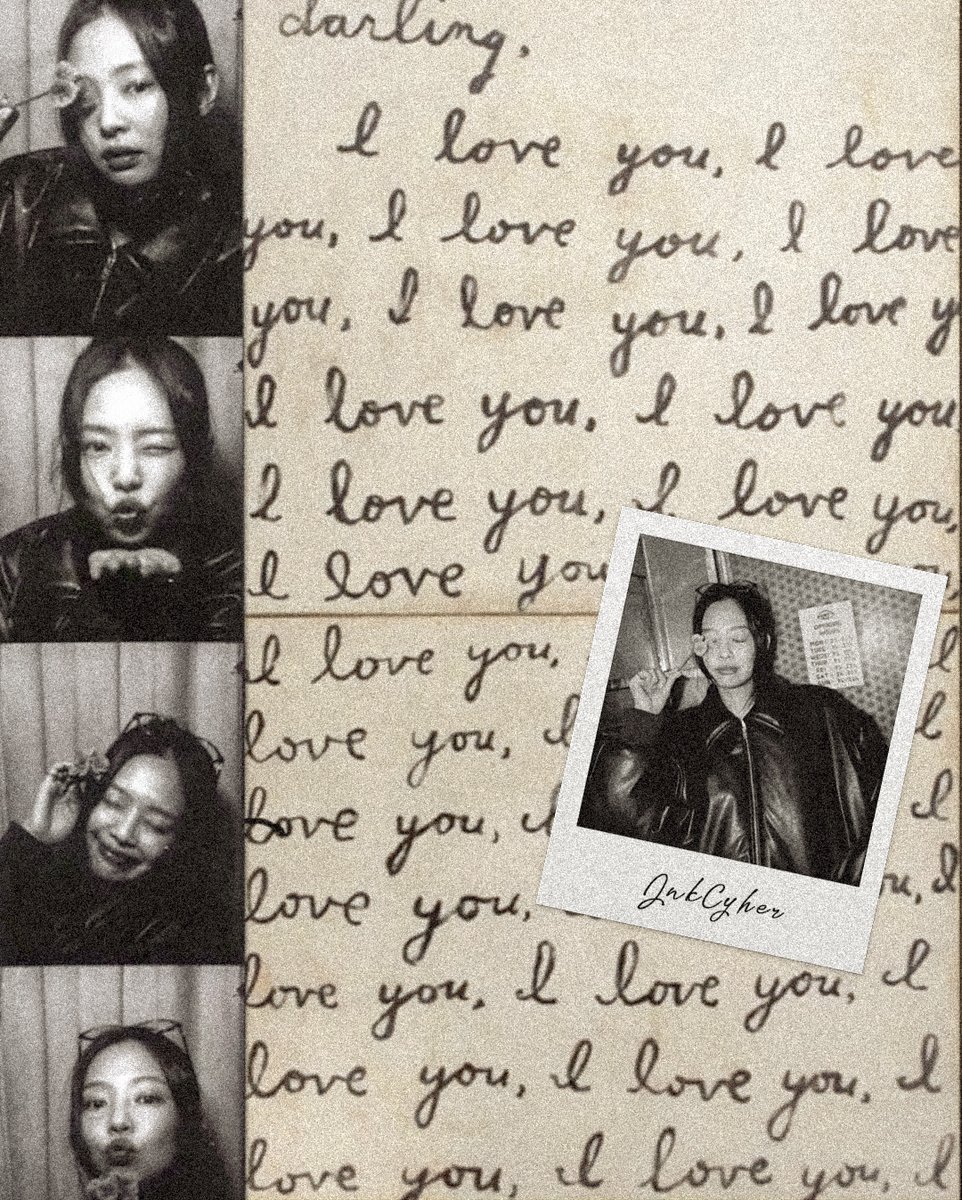 darling,
I love you, I love
you, I love you, I love
you, I love you, I love y
I love you, I love you
I love you, I love you,
I love you
I love you,
love you, I
love you, I
love you,
love you, I love you, I
love you, I love you, I
love you, I love you, I
InkCyher